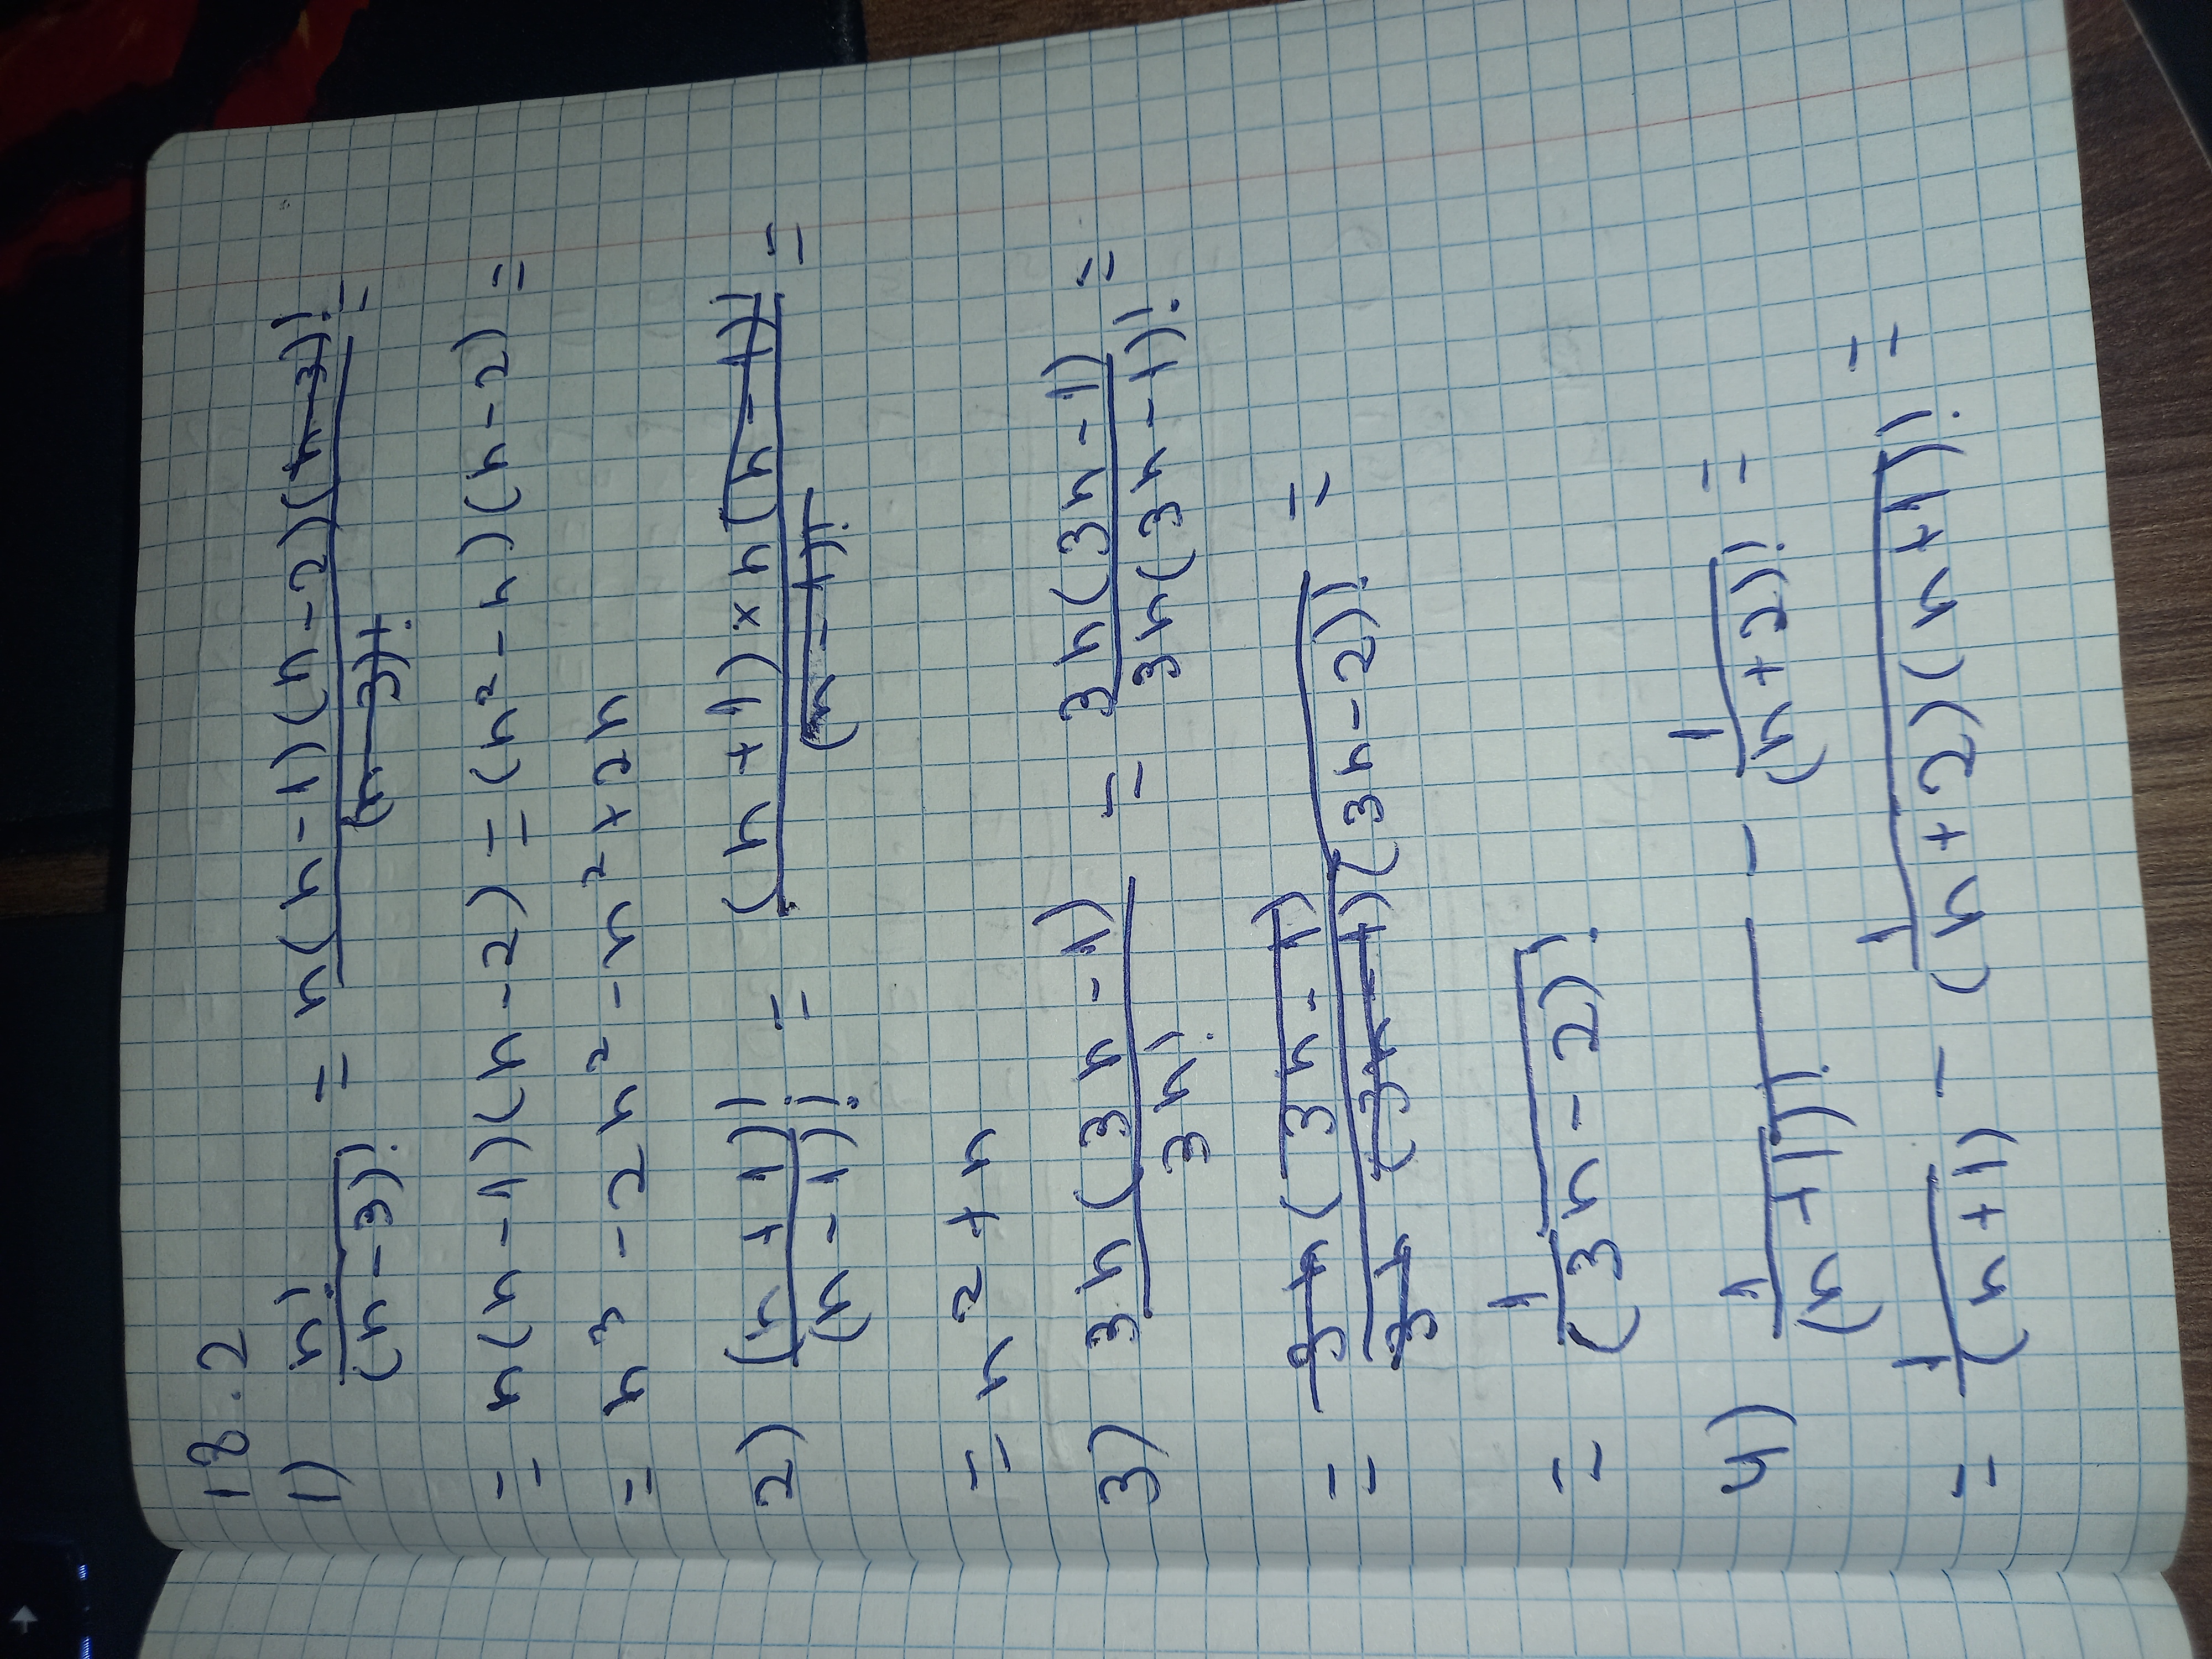 18.2
1) n!/(n-3)! = n(n-1)(n-2)(n-3)!/(n-3)! =
= n(n-1)(n-2) = (n²-n)(n-2) =
= n³ - 2n² - n² + 2n
2) (n+1)!/(n-1)! = (n+1)×n(n-1)!/(n-1)! =
= n² + n
3) 3n(3n-1)/3n! = 3n(3n-1)/3n(3n-1)! =
= 3n(3n-1)/3n(3n-1)(3n-2)! =
= 1/(3n-2)!
4) 1/(n+1)! - 1/(n+2)! =
= 1/(n+1) - 1/(n+2)(n+1)! =